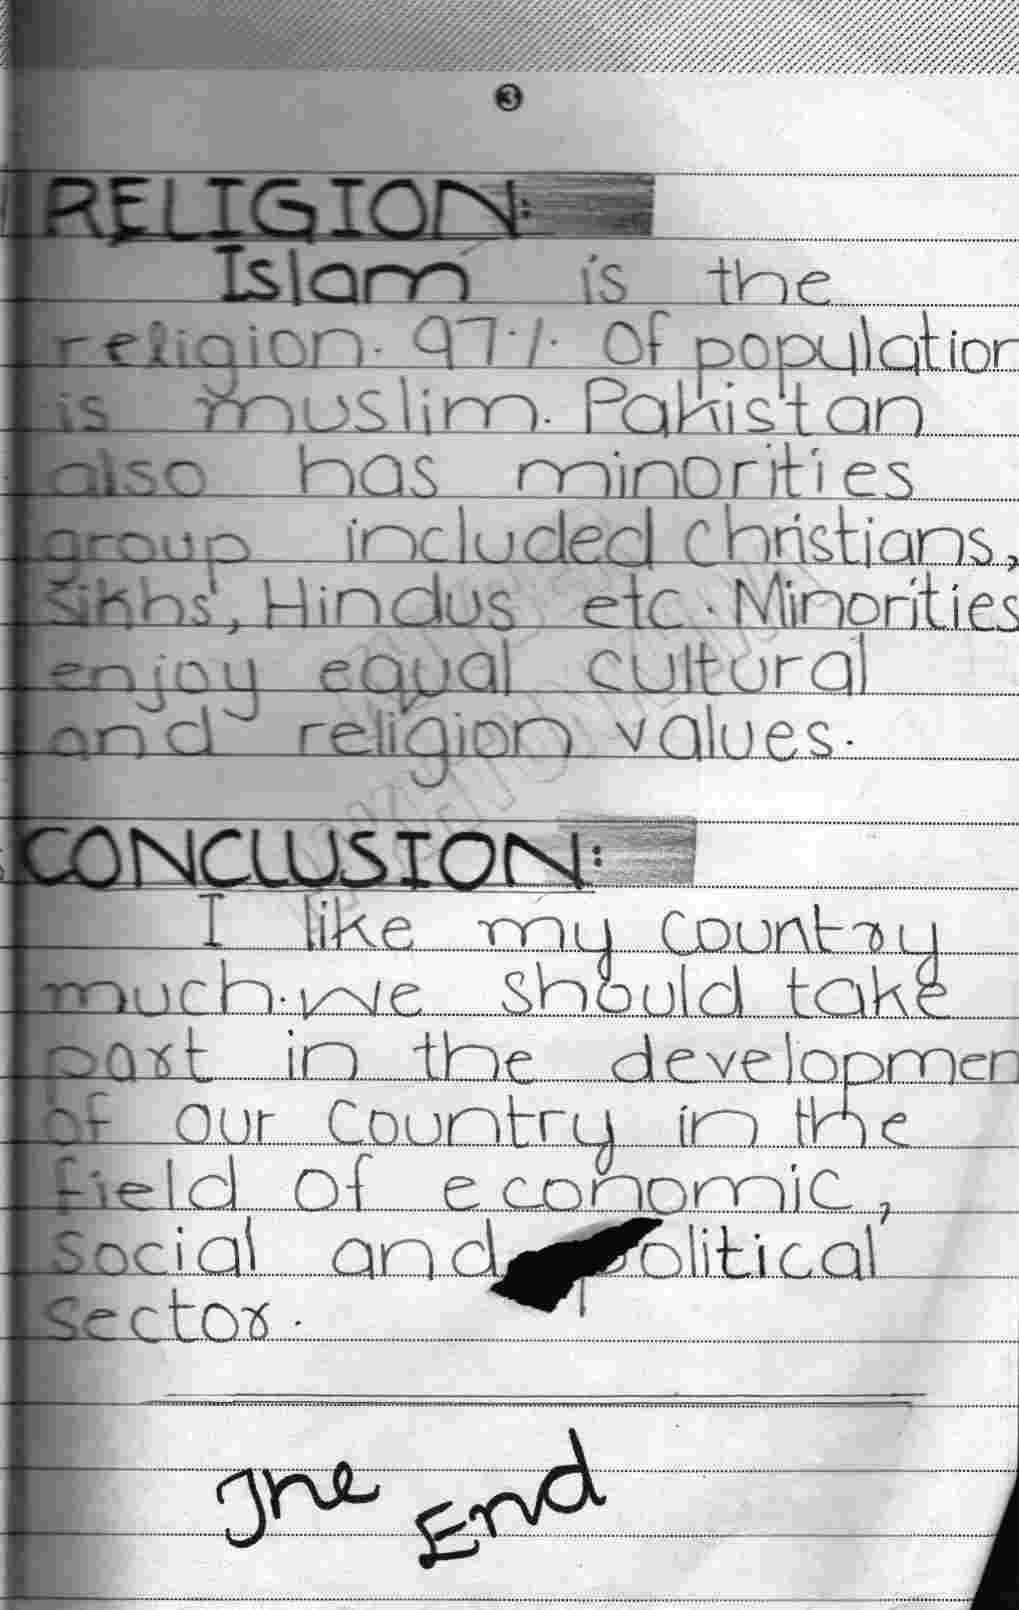 3
RELIGION:
Islam is the
religion. 97% Of population
is muslim. Pakistan
also has minorities
group included christians,
Sikhs, Hindus etc. Minorities
enjoy equal cultural
and religion values.
CONCLUSION:
I like my country
much. We should take
part in the developmen
of our country in the
field of economic,
social and political
sector.
The End